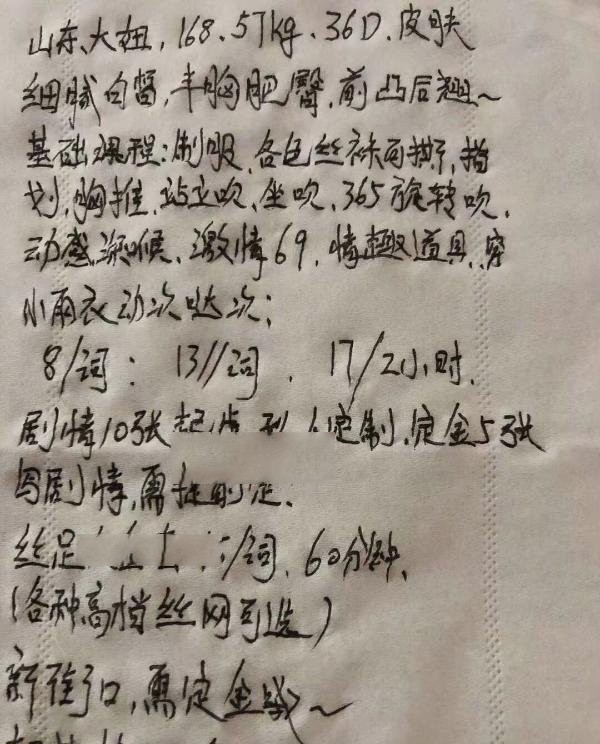 山东、大妞，168.57kg.36D.皮肤
细腻白皙，丰胸肥臀，前凸后翘~
基础课程:制服、各色丝袜面撕，指
划，胸推、站立吹、坐吹、365旋转吹，
动感深喉、激情69，情趣道具，穿
小雨衣动次哒次:
8/词: 13//词. 17/2小时.
剧情10张起 定制，定金5张
写剧情，需 .
丝足 /词，60分钟，
(各种高档丝网可选)
新街口，需定金哦~